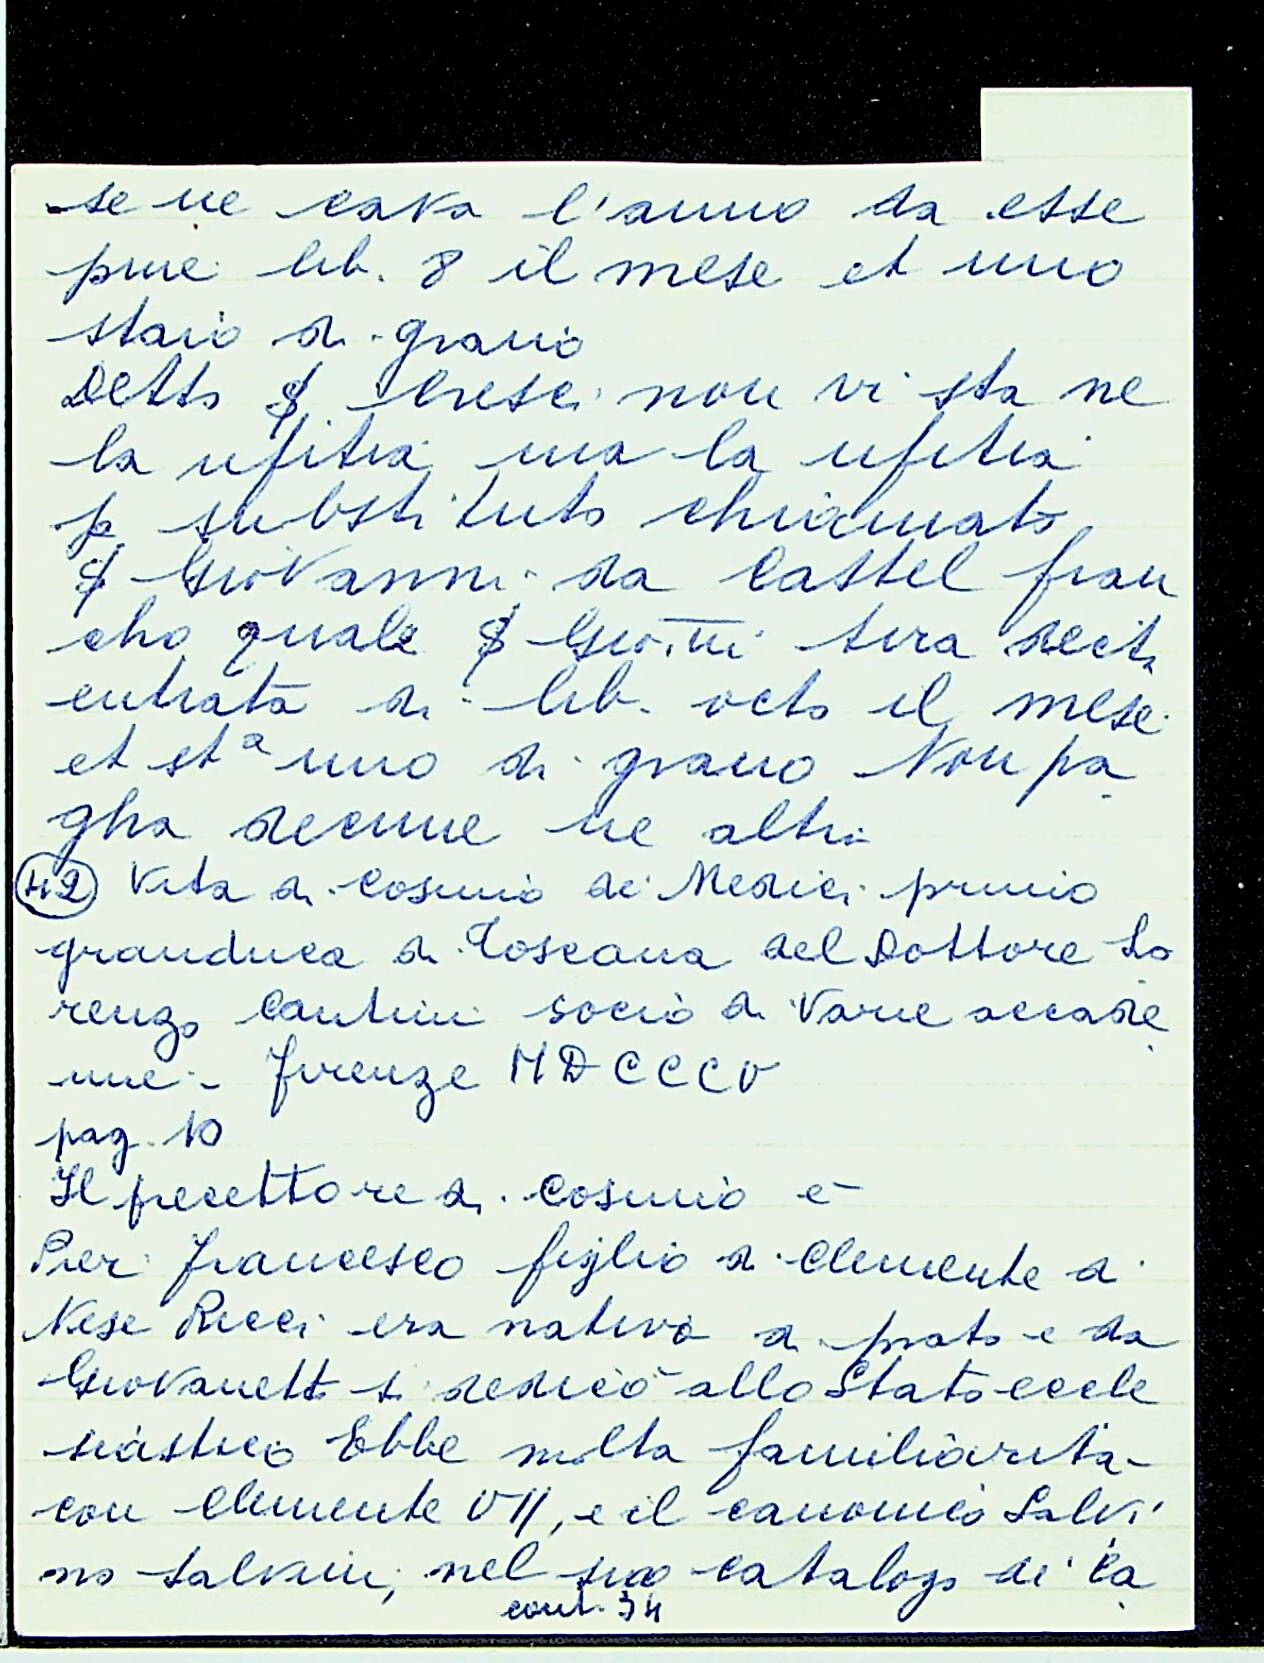 se ne cava l'anno da esse
pure lib. 8 il mese et uno
staio di grano
Detto $ Cresci non vi sta ne
la ufitia ma la ufitia
p substituto chiamato
$ Giovanni da Castel fran
cho quale $ Gio.ni tira decta
entrata di lib. octo il mese
et st.ª uno di grano Non pa
gha decime ne altri
(42) Vita di Cosimo de' Medici primo
granduca di Toscana del Dottore Lo
renzo Cantini socio di varie accade
mie - Firenze MDCCCV
pag. 10
Il precettore di Cosimo è
Pier Francesco figlio di Clemente di
Nese Ricci era nativo di prato e da
Giovanetto si dedicò allo Stato eccle
siastico Ebbe molta familiarità
con Clemente VII, e il canonico Salvi
no Salvini, nel suo catalogo di ca
cont. 34